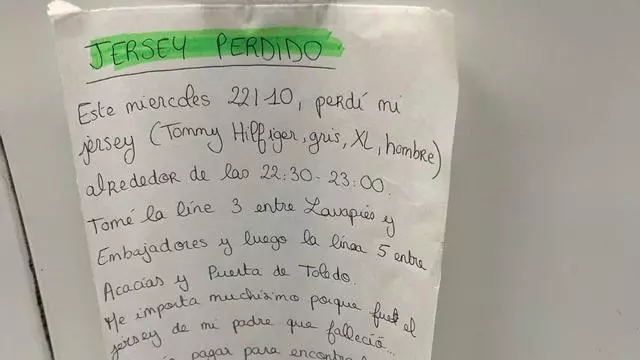 JERSEY PERDIDO
Este miercoles 22/10, perdí mi
jersey (Tommy Hilfiger, gris, XL, hombre)
alrededor de las 22:30-23:00.
Tomé la line 3 entre Lavapiés y
Embajadores y luego la línea 5 entre
Acacias y Puerta de Toledo.
Me importa muchísimo porque fue el
jersey de mi padre que falleció...
pagar para